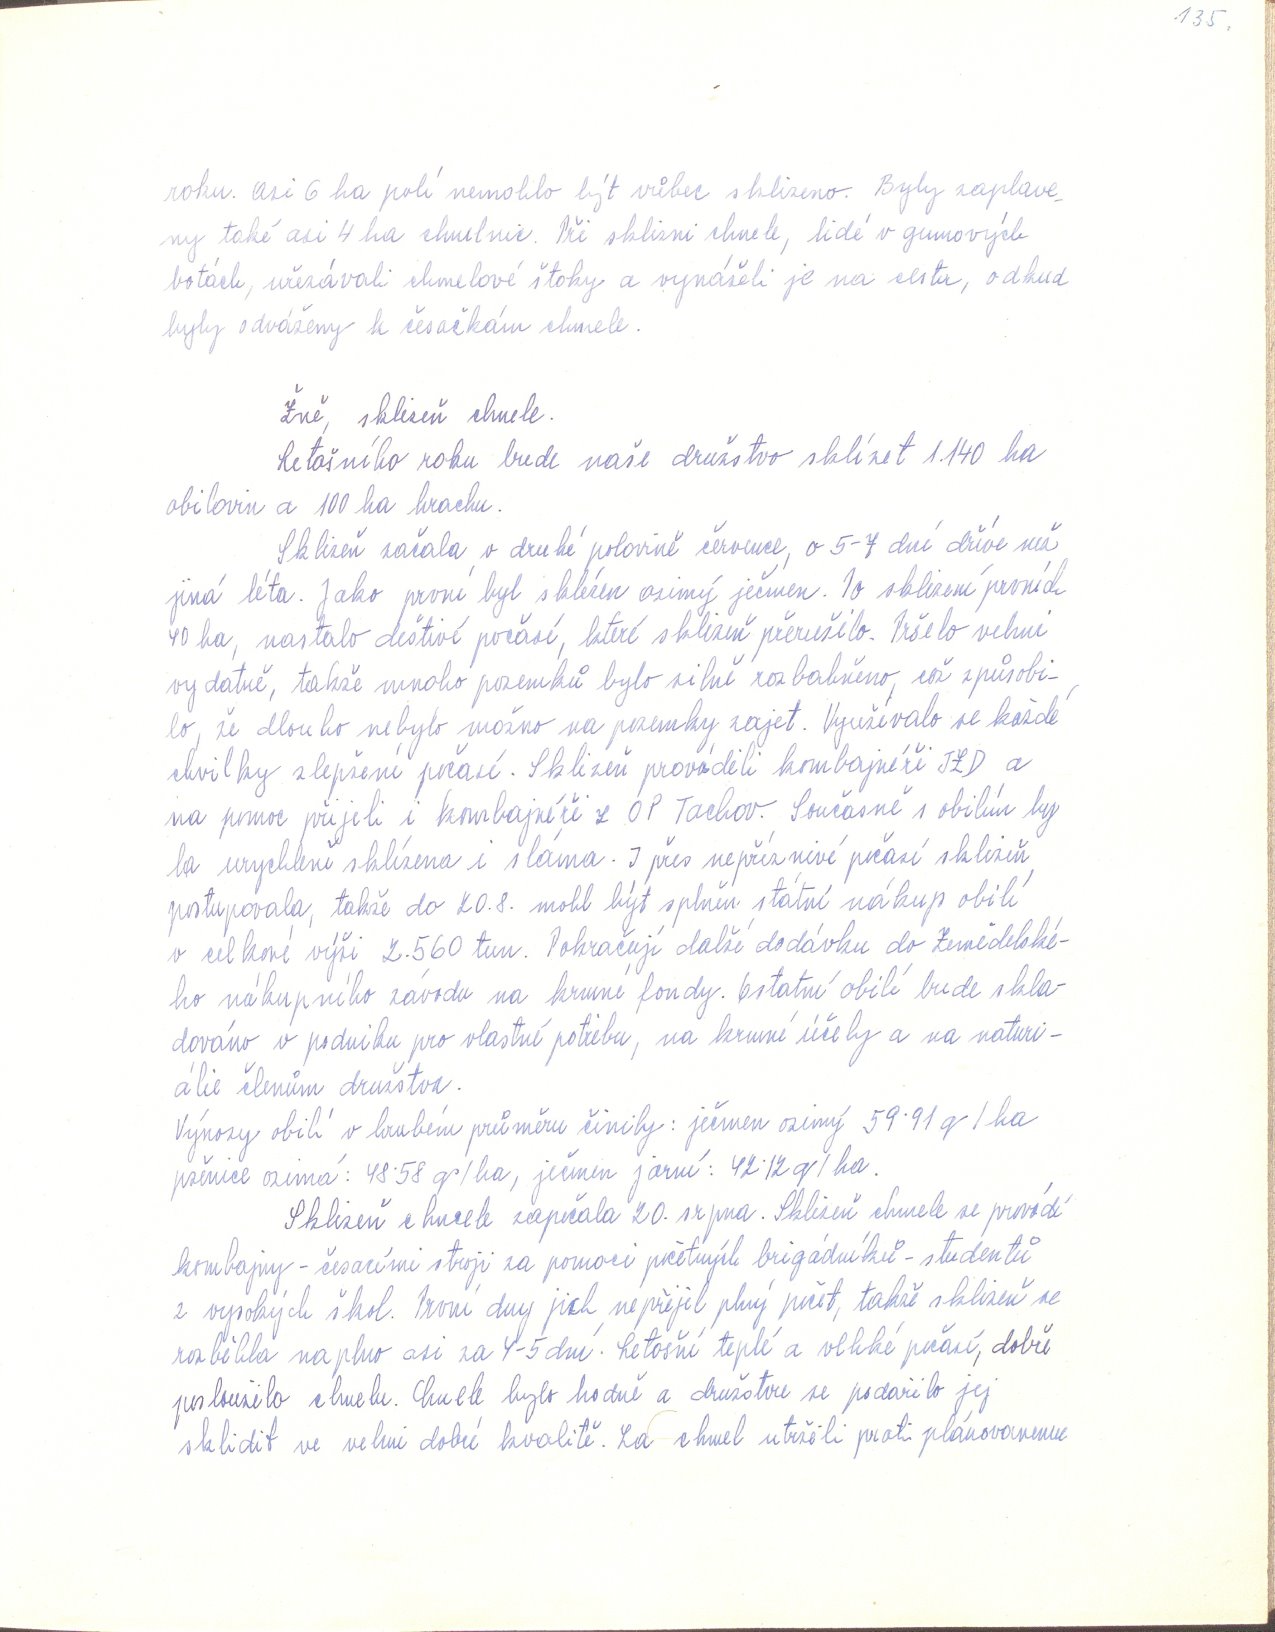 135.
roku. Asi 6 ha polí nemohlo být vůbec sklizeno. Byly zaplave-
ny také asi 4 ha chmelnic. Při sklizni chmele, lidé v gumových
botách, uřezávali chmelové štoky a vynášeli je na cestu, odkud
byly odváženy k česačkám chmele.
Žně, sklizeň chmele.
Letošního roku bude naše družstvo sklízet 1.140 ha
obilovin a 100 ha hrachu.
Sklizeň začala v druhé polovině července, o 5-7 dní dříve než
jiná léta. Jako první byl sklízen ozimý ječmen. Po sklizení prvních
40 ha, nastalo deštivé počasí, které sklizeň přerušilo. Pršelo velmi
vydatně, takže mnoho pozemků bylo silně rozbahněno, což způsobi-
lo, že dlouho nebylo možno na pozemky zajet. Využívalo se každé
chvilky zlepšení počasí. Sklizeň prováděli kombajnéři JZD a
na pomoc přijeli i kombajnéři z OP Tachov. Současně s obilím by
la urychleně sklízena i sláma. I přes nepříznivé počasí sklizeň
postupovala, takže do 20.8. mohl být splněn státní nákup obilí
v celkové výši 2.560 tun. Pokračují další dodávku do Zemědělské-
ho nákupního závodu na krmné fondy. Ostatní obilí bude skla-
dováno v podniku pro vlastní potřebu, na krmné účely a na naturi-
álie členům družstva.
Výnosy obilí v hrubém průměru činily: ječmen ozimý 59.91 q/ha
pšenice ozimá: 48.58 q/ha, ječmen jarní: 42.12 q/ha.
Sklizeň chmele započala 20. srpna. Sklizeň chmele se provádí
kombajny - česacími stroji za pomoci početných brigádníků - studentů
z vysokých škol. První dny jich nepřijel plný počet, takže sklizeň se
rozběhla naplno asi za 4-5 dní. Letošní teplé a vlhké počasí, dobře
posloužilo chmelu. Chmele bylo hodně a družstvu se podařilo jej
sklidit ve velmi dobré kvalitě. Za chmel utržili proti plánovanému